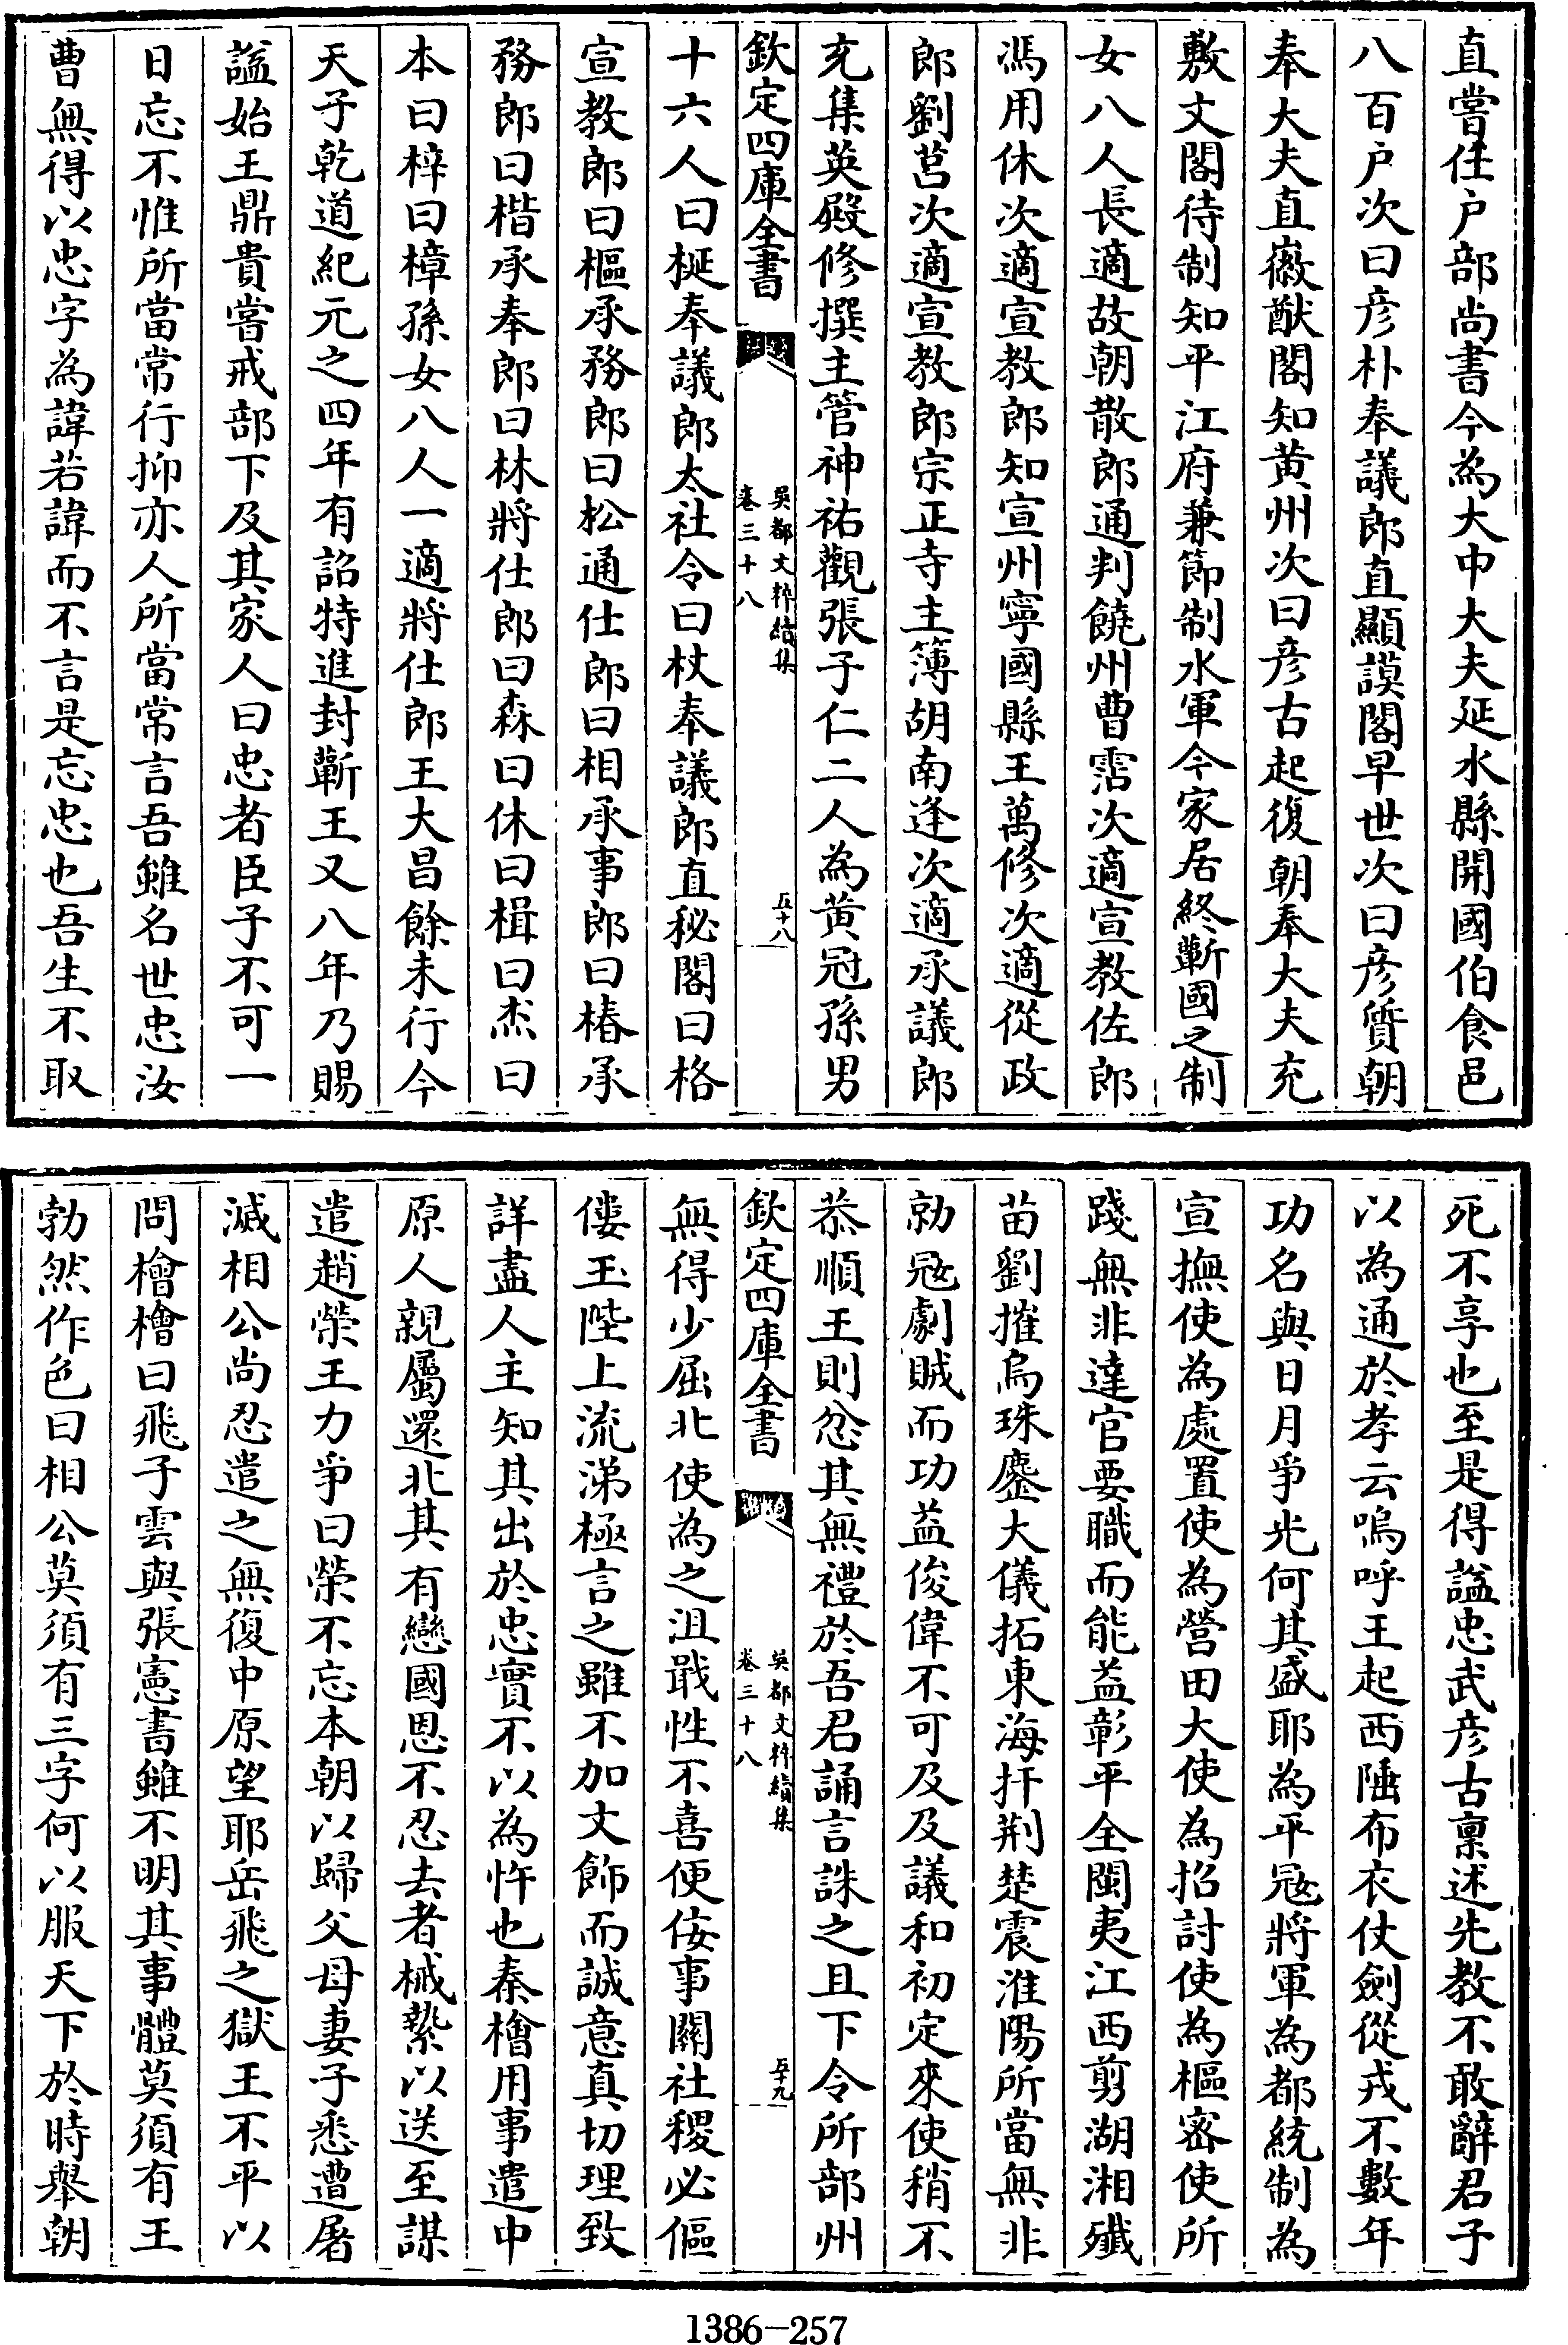 直嘗任户部尚書今為大中大夫延水縣開國伯食邑
八百户次曰彦朴奉議郎直顯謨閣早世次曰彦質朝
奉大夫直徽猷閣知黄州次曰彦古起復朝奉大夫充
敷文閣待制知平江府兼節制水軍今家居終蘄國之制
女八人長適故朝散郎通判饒州曹霑次適宣教佐郎
馮用休次適宣教郎知宣州寧國縣王萬修次適從政
郎劉莒次適宣教郎宗正寺主簿胡南逢次適承議郎
充集英殿修撰主管神祐觀張子仁二人為黄冠孫男
欽定四庫全書
吳都文粹續集
卷三十八
五十八
十六人曰梴奉議郎太社令曰杖奉議郎直秘閣曰格
宣教郎曰樞承務郎曰松通仕郎曰相承事郎曰椿承
務郎曰楷承奉郎曰林將仕郎曰森曰休曰楫曰杰曰
本曰梓曰樟孫女八人一適將仕郎王大昌餘未行今
天子乾道紀元之四年有詔特進封蘄王又八年乃賜
諡始王鼎貴嘗戒部下及其家人曰忠者臣子不可一
日忘不惟所當常行抑亦人所當常言吾雖名世忠汝
曹無得以忠字為諱若諱而不言是忘忠也吾生不取
死不享也至是得諡忠武彦古稟述先教不敢辭君子
以為通於孝云嗚呼王起西陲布衣仗劍從戎不數年
功名與日月爭光何其盛耶為平寇將軍為都統制為
宣撫使為處置使為營田大使為招討使為樞密使所
踐無非達官要職而能益彰平全閩夷江西剪湖湘殲
苗劉摧烏珠鏖大儀拓東海扞荆楚震淮陽所當無非
勍寇劇賊而功益俊偉不可及及議和初定來使稍不
恭順王則忿其無禮於吾君誦言誅之且下令所部州
欽定四庫全書
吳都文粹續集
卷三十八
五十九
無得少屈北使為之沮戢性不喜便佞事關社稷必傴
僂玉陛上流涕極言之雖不加文飾而誠意真切理致
詳盡人主知其出於忠實不以為忤也秦檜用事遣中
原人親屬還北其有戀國恩不忍去者械縶以送至謀
遣趙榮王力爭曰榮不忘本朝以歸父母妻子悉遭屠
滅相公尚忍遣之無復中原望耶岳飛之獄王不平以
問檜檜曰飛子雲與張憲書雖不明其事體莫須有王
勃然作色曰相公莫須有三字何以服天下於時舉朝
1386-257